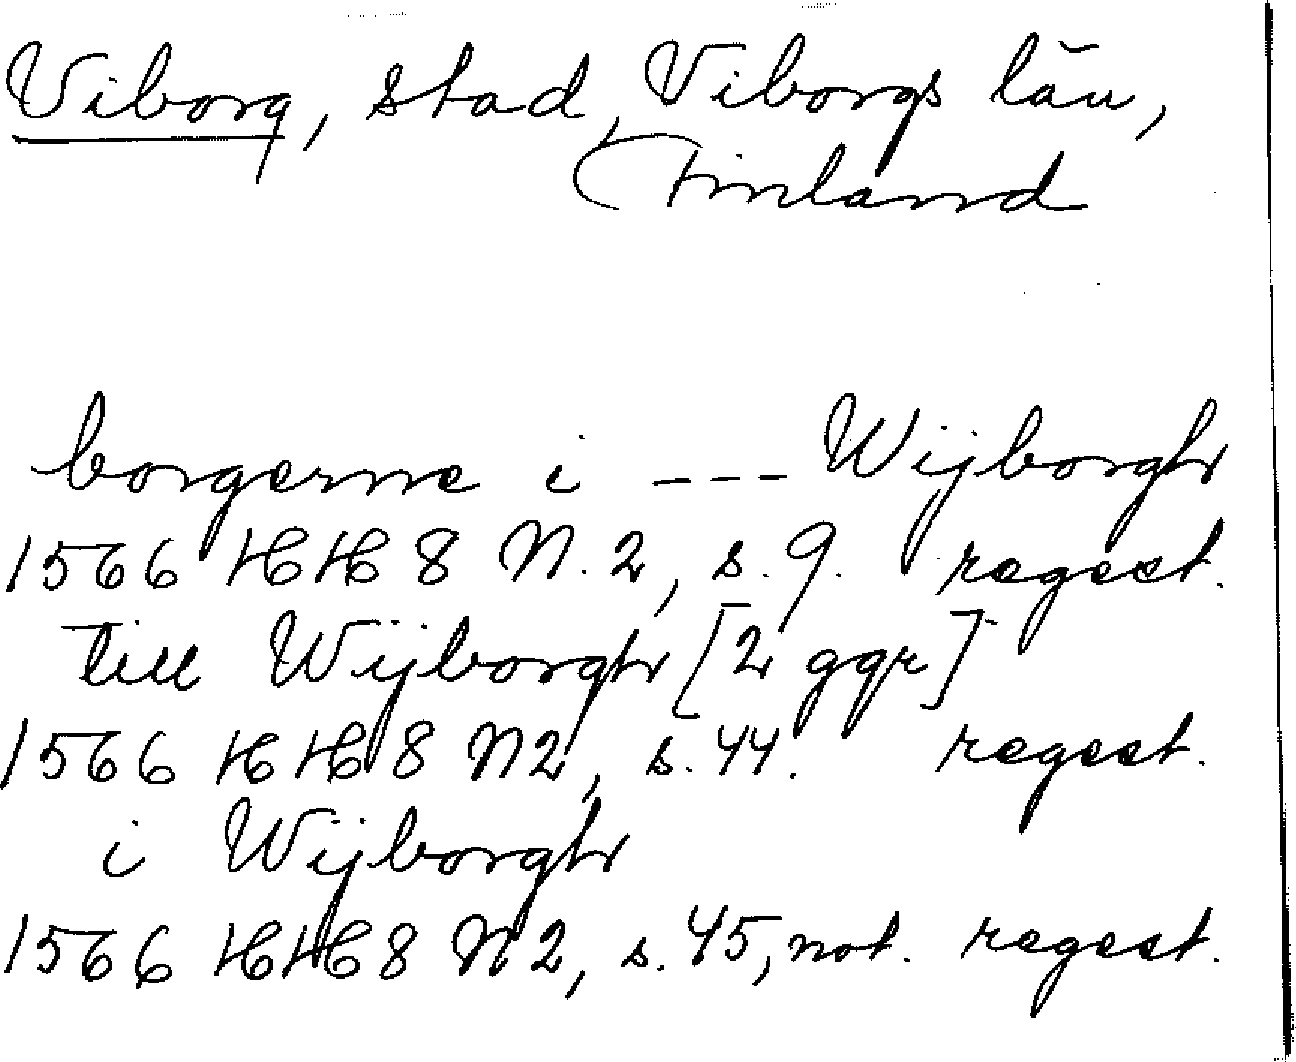 Viborg, stad, Viborgs län,
Finland
borgerne i --- Wijborgh
1566 HH 8 N.2, s. 9. regest.
till Wijborgh [2 ggr]
1566 HH 8 N2, s. 44. regest.
i Wijborgh
1566 HH 8 N2, s. 45, not. regest.